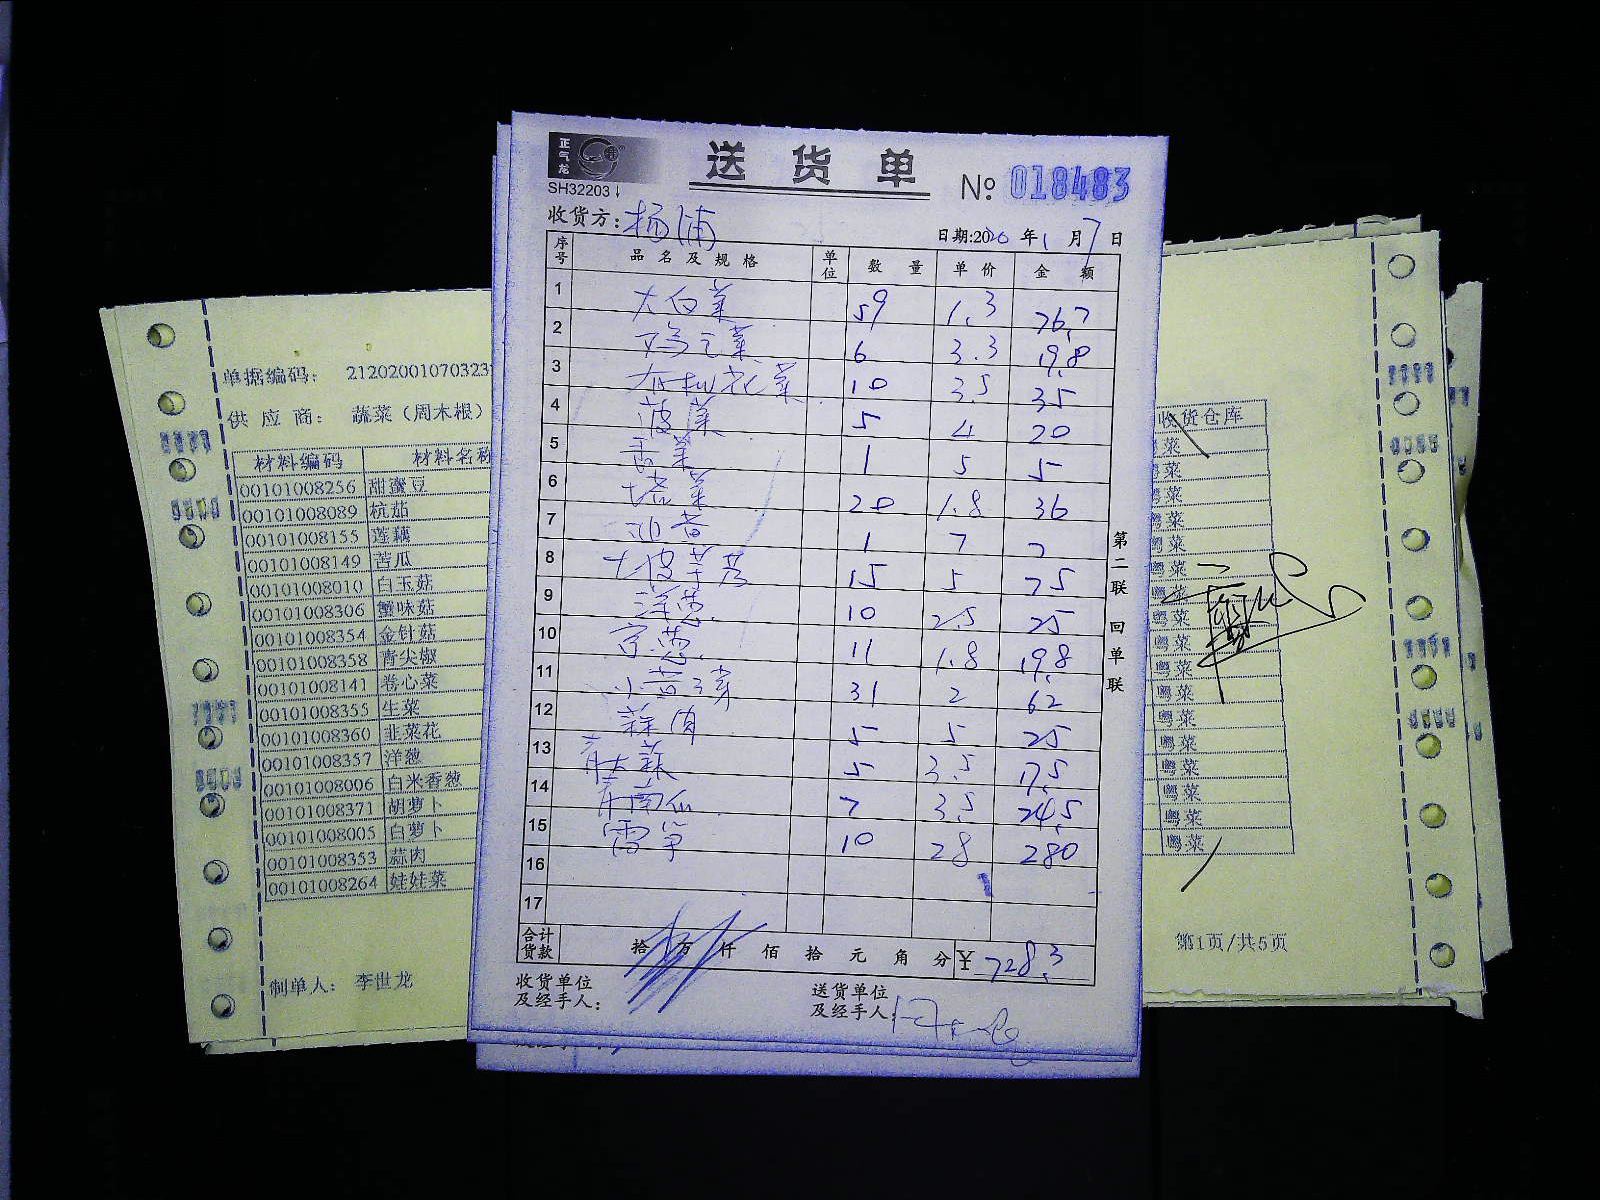 正气龙
SH32203
送货单
№ 018483
收货方: 杨浦
日期:2020年1月7日
序号 品名及规格 单位 数量 单价 金额
1 大白菜 59 1.3 76.7
2 鸡毛菜 6 3.3 19.8
3 有机花菜 10 3.5 35
4 菠菜 5 4 20
5 香菜 1 5 5
6 塔菜 20 1.8 36
7 1 7 7
8 15 5 75
9 洋葱 10 2.5 25
10 京葱 11 1.8 19.8
11 31 2 62
12 蒜肉 5 5 25
13 青大蒜 5 3.5 17.5
14 7 3.5 24.5
15 雪笋 10 28 280
16
17
合计货款 拾 万 仟 佰 拾 元 角 分 ¥ 728.3
收货单位及经手人:
送货单位及经手人:
第二联 回单联
单据编码: 2120200107032
供应商: 蔬菜(周木根)
材料编码 材料名称
00101008256 甜蜜豆
00101008089 杭茄
00101008155 莲藕
00101008149 苦瓜
00101008010 白玉菇
00101008306 蟹味菇
00101008354 金针菇
00101008358 青尖椒
00101008141 卷心菜
00101008355 生菜
00101008360 韭菜花
00101008357 洋葱
00101008006 白米香葱
00101008371 胡萝卜
00101008005 白萝卜
00101008353 蒜肉
00101008264 娃娃菜
制单人: 李世龙
收货仓库
菜
菜
菜
粤菜
粤菜
粤菜
粤菜
粤菜
粤菜
粤菜
粤菜
粤菜
粤菜
粤菜
粤菜
粤菜
粤菜
第1页/共5页